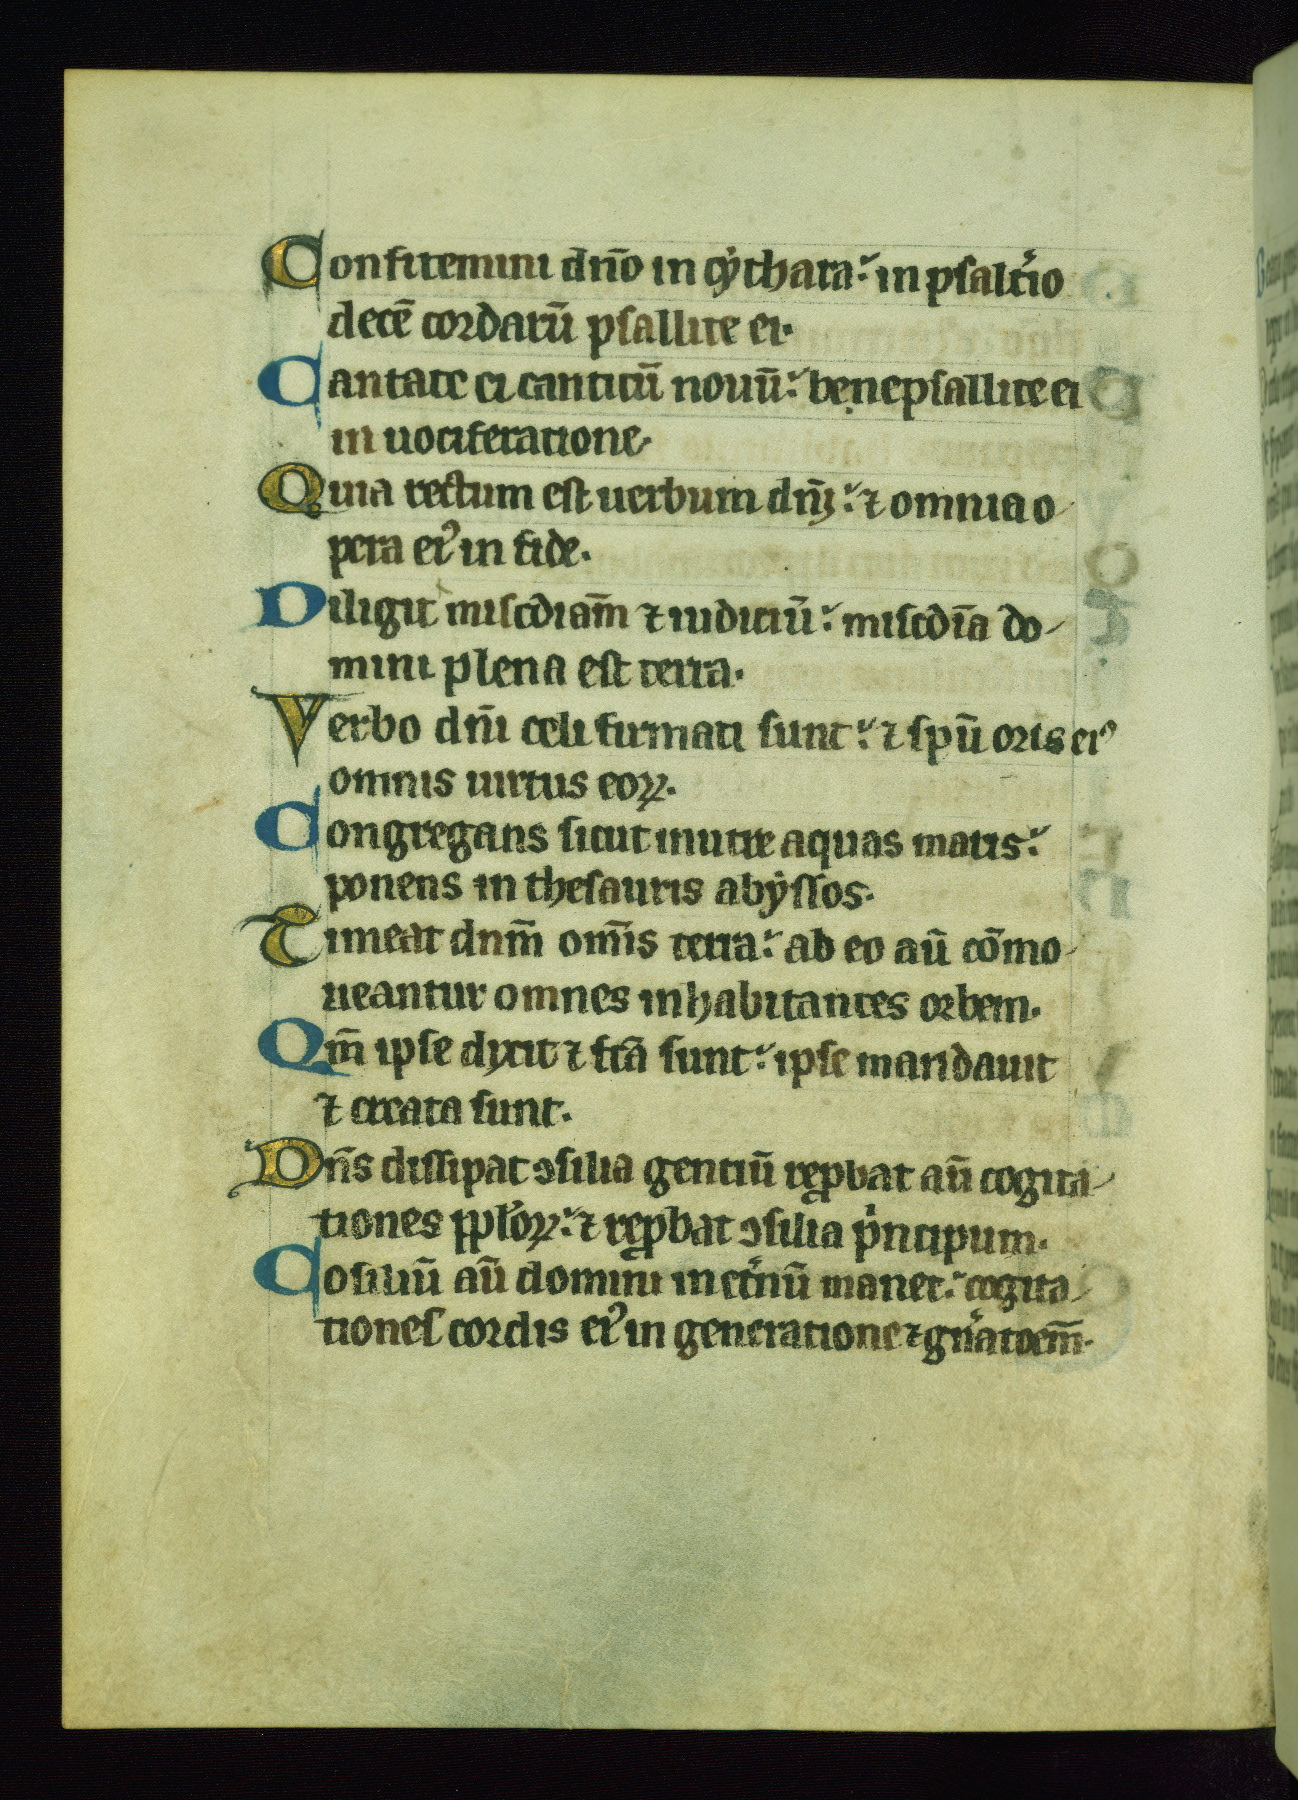 Confitemini dn̄o in cẏthara: in psaltʾio
decē cordarū psallite ei.
Cantate ei canticū nouū: bene psallite ei
in uociferatione.
Quia rectum est uerbum dn̄i: ⁊ omnia o
pera eiꝰ in fide.
Diligit misc̄diam̄ ⁊ iudiciū: misc̄dīa do
mini plena est terra.
Verbo dn̄i celi firmati sunt: ⁊ spū oris eiꝰ
omnis uirtus eoꝝ.
Congregans sicut in utre aquas maris:
ponens in thesauris abẏssos.
Timeat dnm̄ om̄is terra: ab eo aū cōmo
ueantur omnes inhabitantes orbem.
Qm̄ ipse dixit ⁊ fc̄a sunt: ipse mandauit
⁊ creata sunt.
Dn̄s dissipat ↄsilia gentiū reꝓbat aū cogita
tiones pplʾoꝝ: ⁊ reꝓbat ↄsilia pʾncipum.
Cosiliū aū domini in etʾnū manet: cogita
tiones cordis eiꝰ in generatione ⁊ gn̄atoem̄.